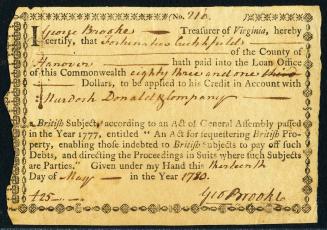 (No. 210.
I George Brooke Treasurer of Virginia, hereby
certify, that Fortunatus Crutchfield
of the County of
Hanover hath paid into the Loan Office
of this Commonwealth eighty three and one third
Dollars, to be applied to his Credit in Account with
Murdoch Donald & Company
British Subjects according to an Act of General Assembly passed
in the Year 1777, entitled "An Act for sequestering British Pro-
perty, enabling those indebted to British Subjects to pay off such
Debts, and directing the Proceedings in Suits where such Subjects
are Parties." Given under my Hand this thirteenth
Day of May in the Year 1780.
£25 Geo Brooke